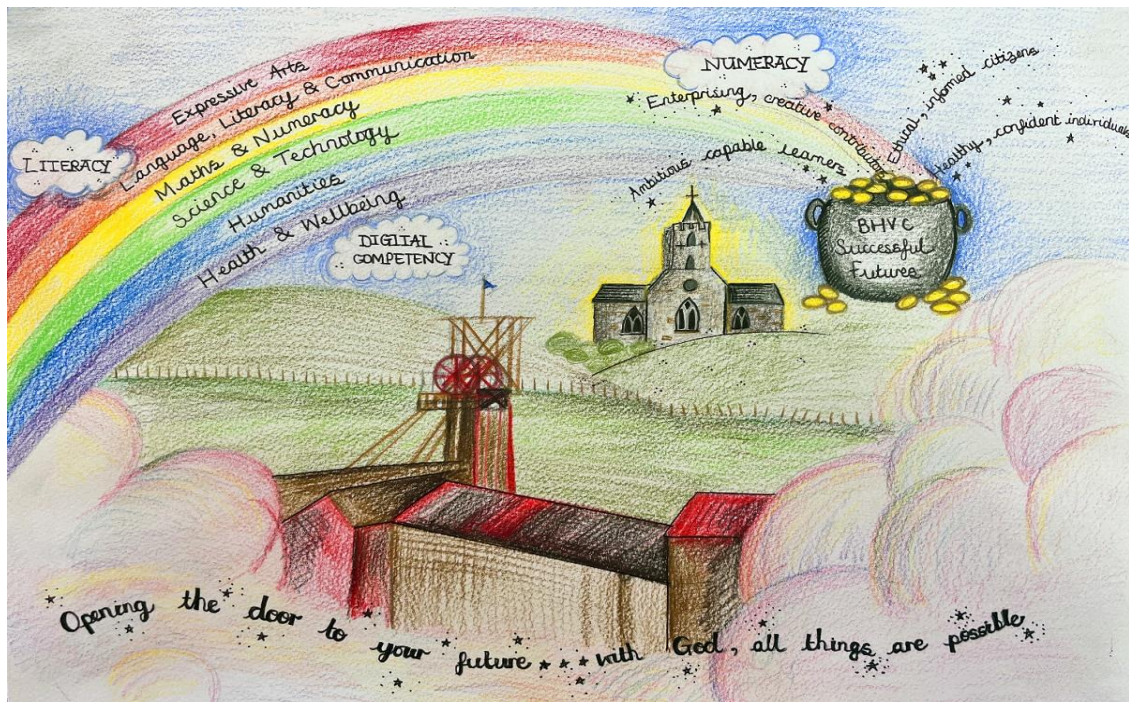 LITERACY
Expressive Arts
Language, Literacy & Communication
Maths & Numeracy
Science & Technology
Humanities
Health & Wellbeing
DIGITAL
COMPETENCY
NUMERACY
Enterprising, creative contributors
Ambitious capable learners
Ethical, informed citizens
Healthy, confident individuals
BHVC
Successful
Futures
Opening the door to your future... with God, all things are possible